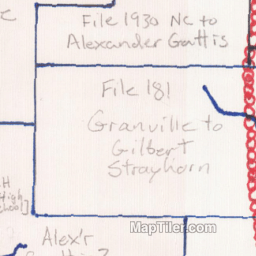 c
File 1930 NC to
Alexander Gattis
File 181
Granville to
Gilbert
Strayhorn
H
High
School]
Alex'r
MapTiler.com